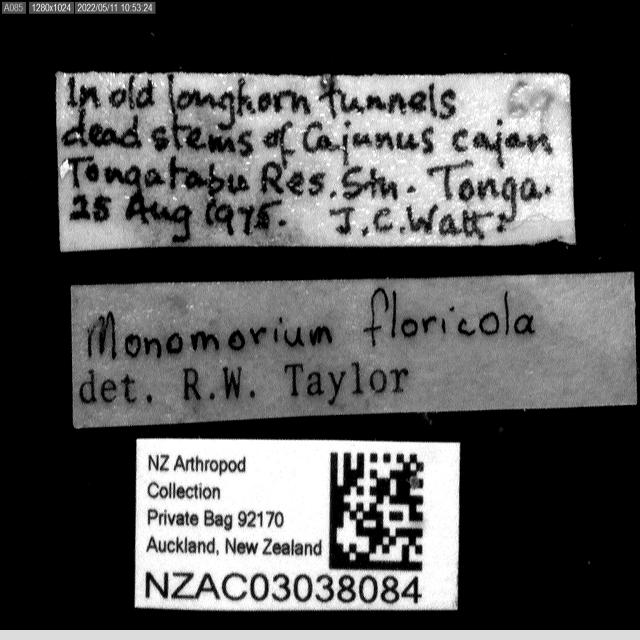 A085 1280x1024 2022/05/11 10:53:24
In old longhorn tunnels 69
dead stems of Cajunus cajan
Tongatabu Res. Stn. Tonga.
25 Aug 1975. J.C. Watt.
Monomorium floricola
det. R.W. Taylor
NZ Arthropod
Collection
Private Bag 92170
Auckland, New Zealand
NZAC03038084